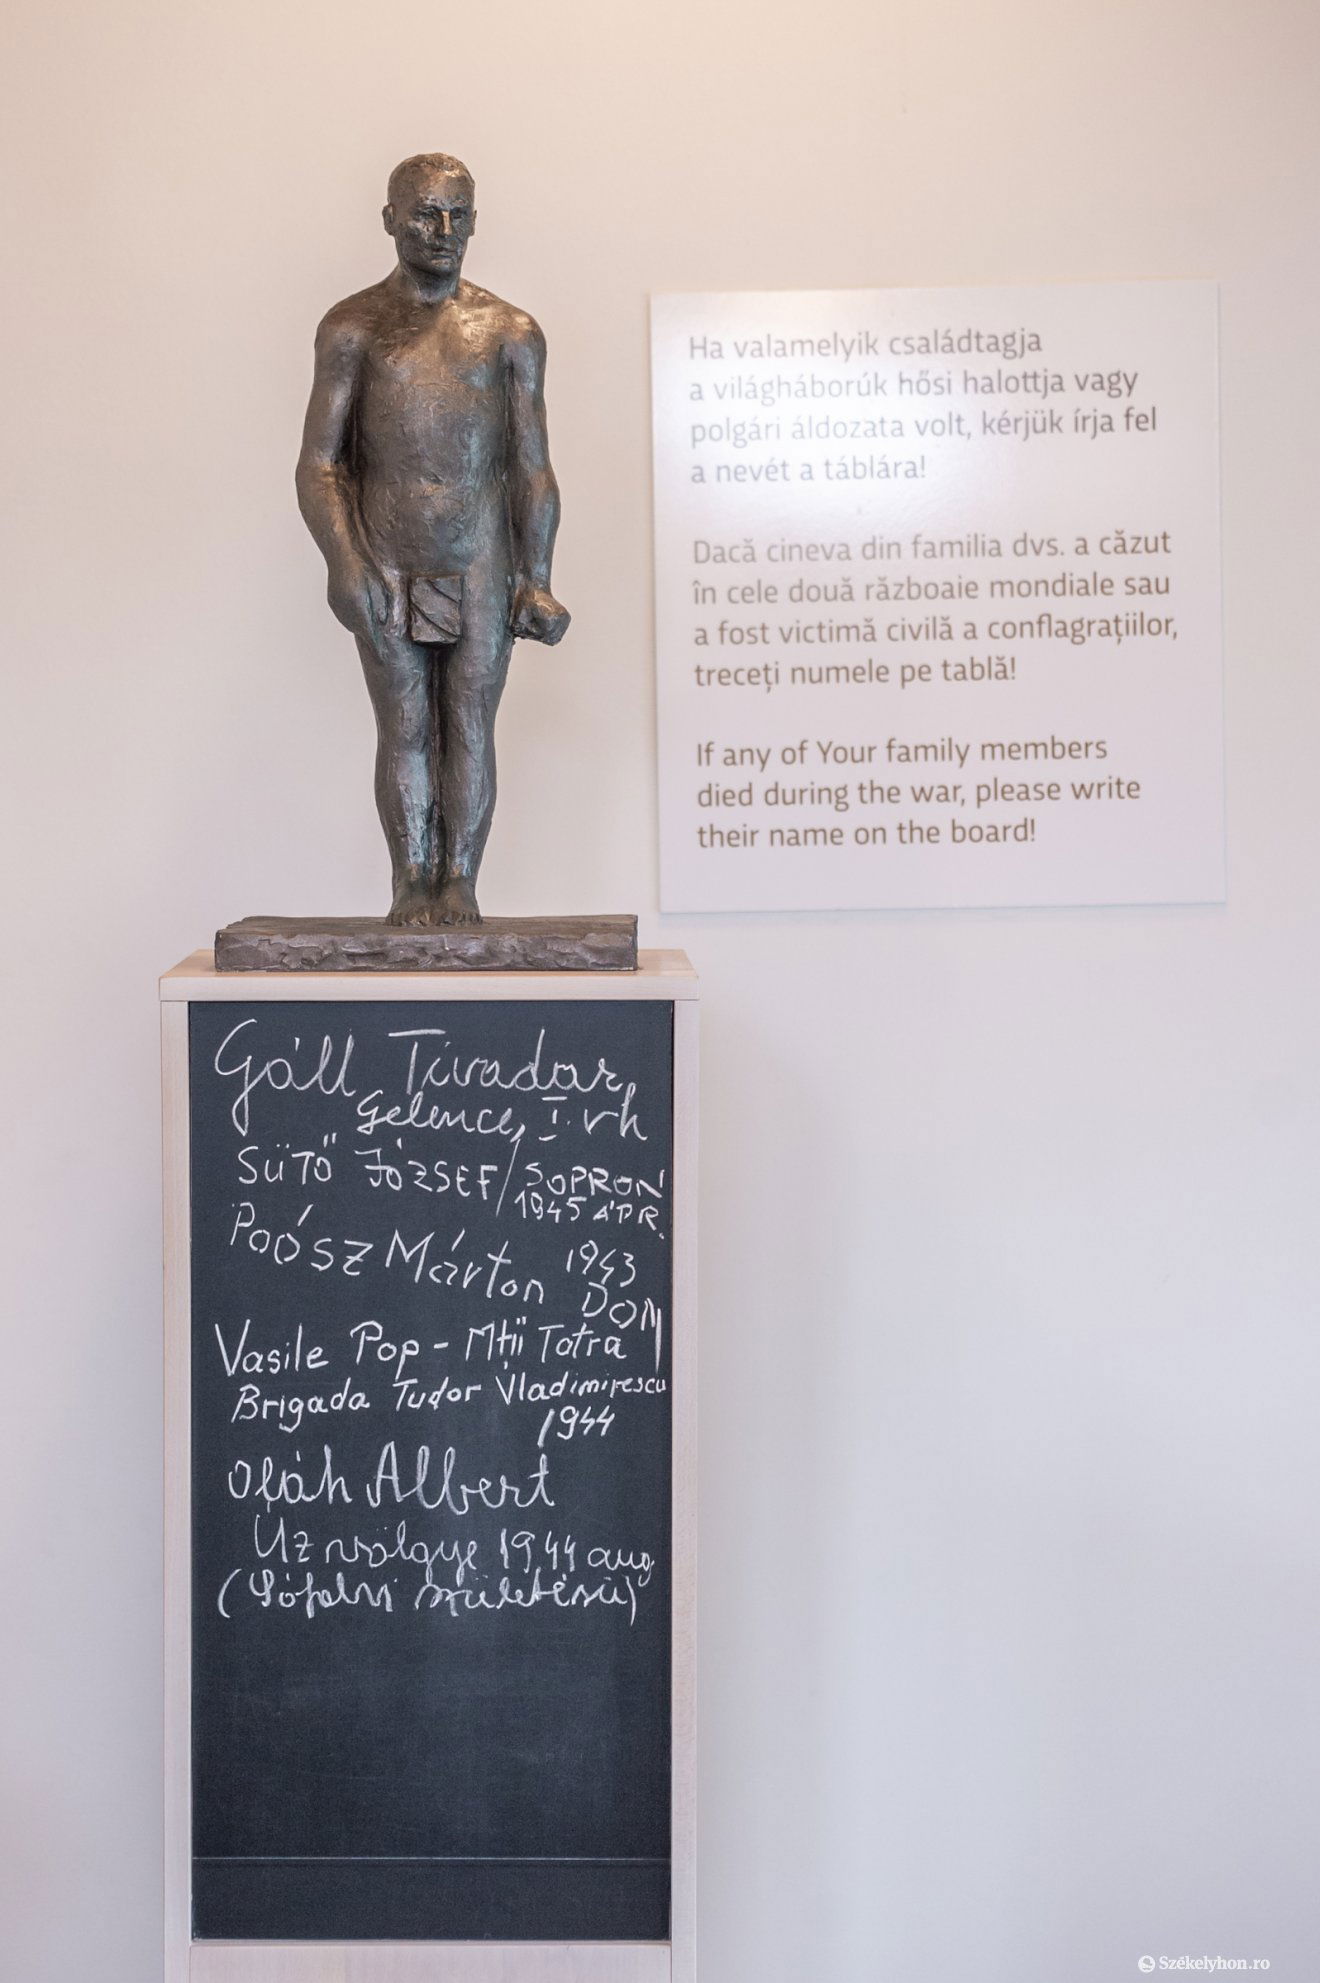 Ha valamelyik családtagja
a világháborúk hősi halottja vagy
polgári áldozata volt, kérjük írja fel
a nevét a táblára!
Dacă cineva din familia dvs. a căzut
în cele două războaie mondiale sau
a fost victimă civilă a conflagrațiilor,
treceți numele pe tablă!
If any of Your family members
died during the war, please write
their name on the board!
Gáll Tivadar
Gelence, I. vh
SÜTŐ JÓZSEF/SOPRON
1945 ÁPR.
Poósz Márton 1943
DON
Vasile Pop - Mții Tatra
Brigada Tudor Vladimirescu
1944
Oláh Albert
Úz völgye 1944 aug
(Sófalvi születésü)
Székelyhon.ro